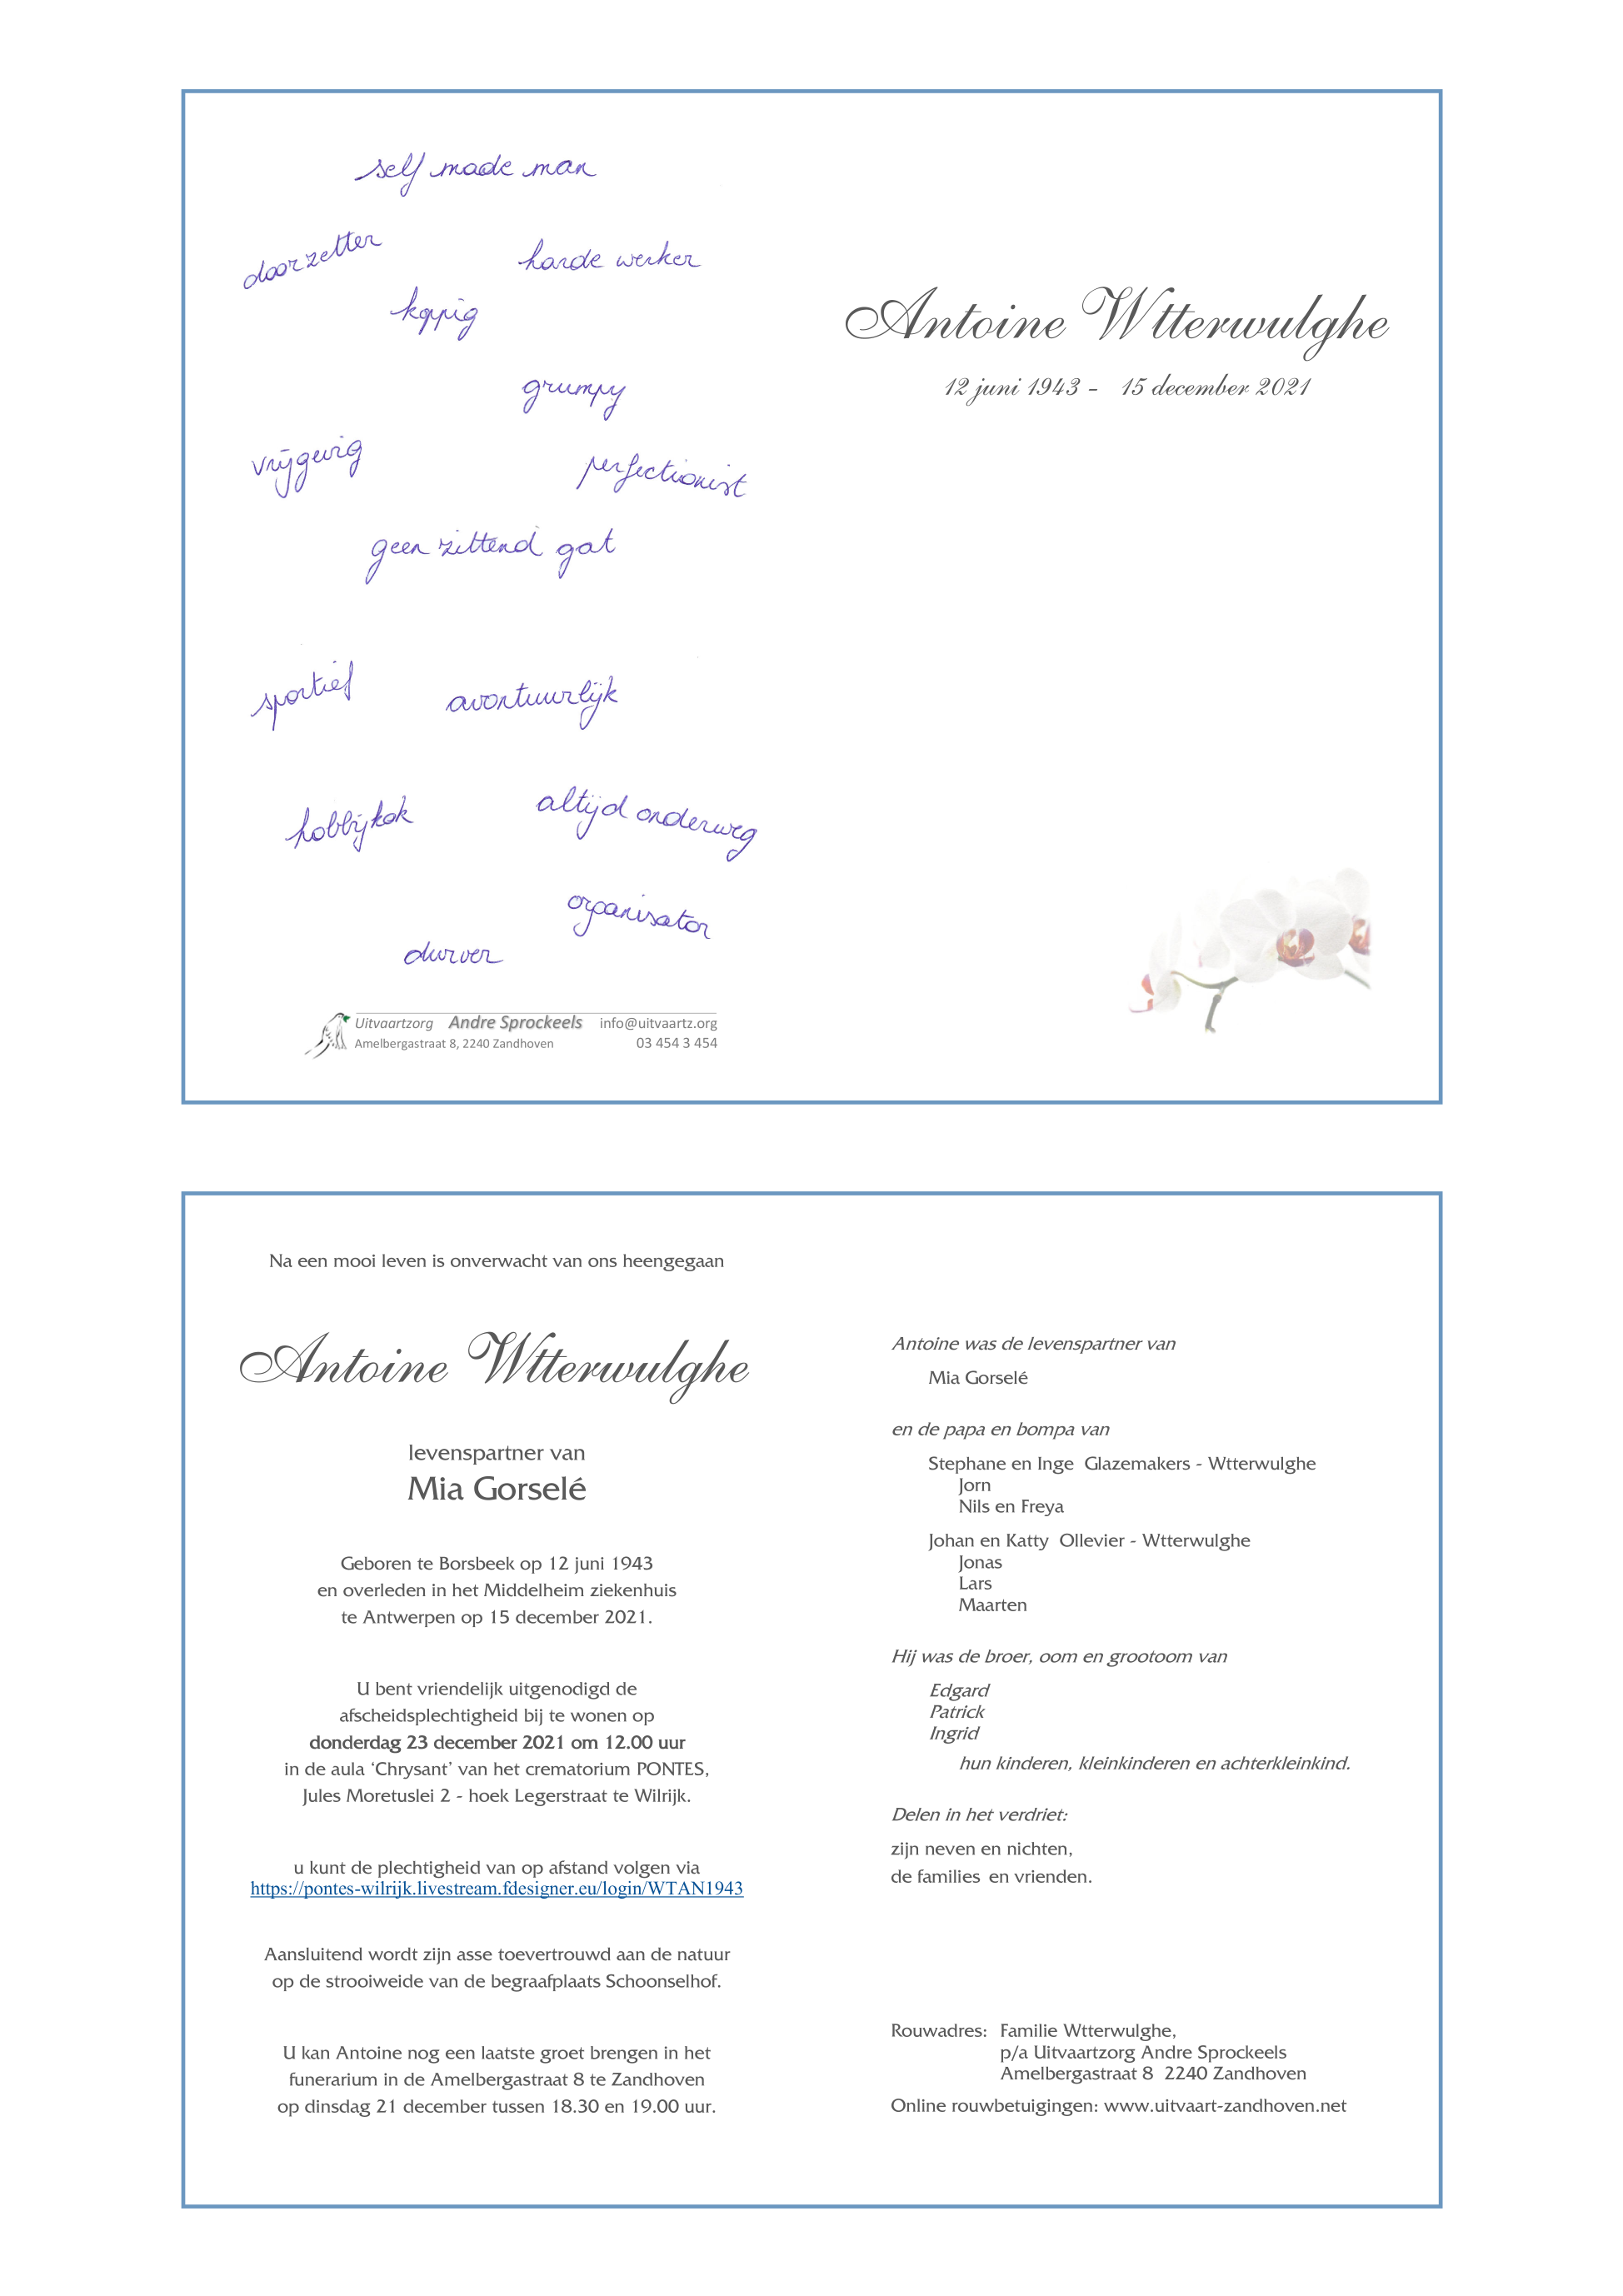 self made man
doorzetter
harde werker
koppig
grumpy
vrijgevig
perfectionist
geen zittend gat
sportief
avontuurlijk
hobbykok
altijd onderweg
organisator
durver
Uitvaartzorg Andre Sprockeels info@uitvaartz.org
Amelbergastraat 8, 2240 Zandhoven 03 454 3 454
Antoine Wtterwulghe
12 juni 1943 - 15 december 2021
Na een mooi leven is onverwacht van ons heengegaan
Antoine Wtterwulghe
levenspartner van
Mia Gorselé
Geboren te Borsbeek op 12 juni 1943
en overleden in het Middelheim ziekenhuis
te Antwerpen op 15 december 2021.
U bent vriendelijk uitgenodigd de
afscheidsplechtigheid bij te wonen op
donderdag 23 december 2021 om 12.00 uur
in de aula ‘Chrysant’ van het crematorium PONTES,
Jules Moretuslei 2 - hoek Legerstraat te Wilrijk.
u kunt de plechtigheid van op afstand volgen via
https://pontes-wilrijk.livestream.fdesigner.eu/login/WTAN1943
Aansluitend wordt zijn asse toevertrouwd aan de natuur
op de strooiweide van de begraafplaats Schoonselhof.
U kan Antoine nog een laatste groet brengen in het
funerarium in de Amelbergastraat 8 te Zandhoven
op dinsdag 21 december tussen 18.30 en 19.00 uur.
Antoine was de levenspartner van
Mia Gorselé
en de papa en bompa van
Stephane en Inge Glazemakers - Wtterwulghe
Jorn
Nils en Freya
Johan en Katty Ollevier - Wtterwulghe
Jonas
Lars
Maarten
Hij was de broer, oom en grootoom van
Edgard
Patrick
Ingrid
hun kinderen, kleinkinderen en achterkleinkind.
Delen in het verdriet:
zijn neven en nichten,
de families en vrienden.
Rouwadres: Familie Wtterwulghe,
p/a Uitvaartzorg Andre Sprockeels
Amelbergastraat 8 2240 Zandhoven
Online rouwbetuigingen: www.uitvaart-zandhoven.net